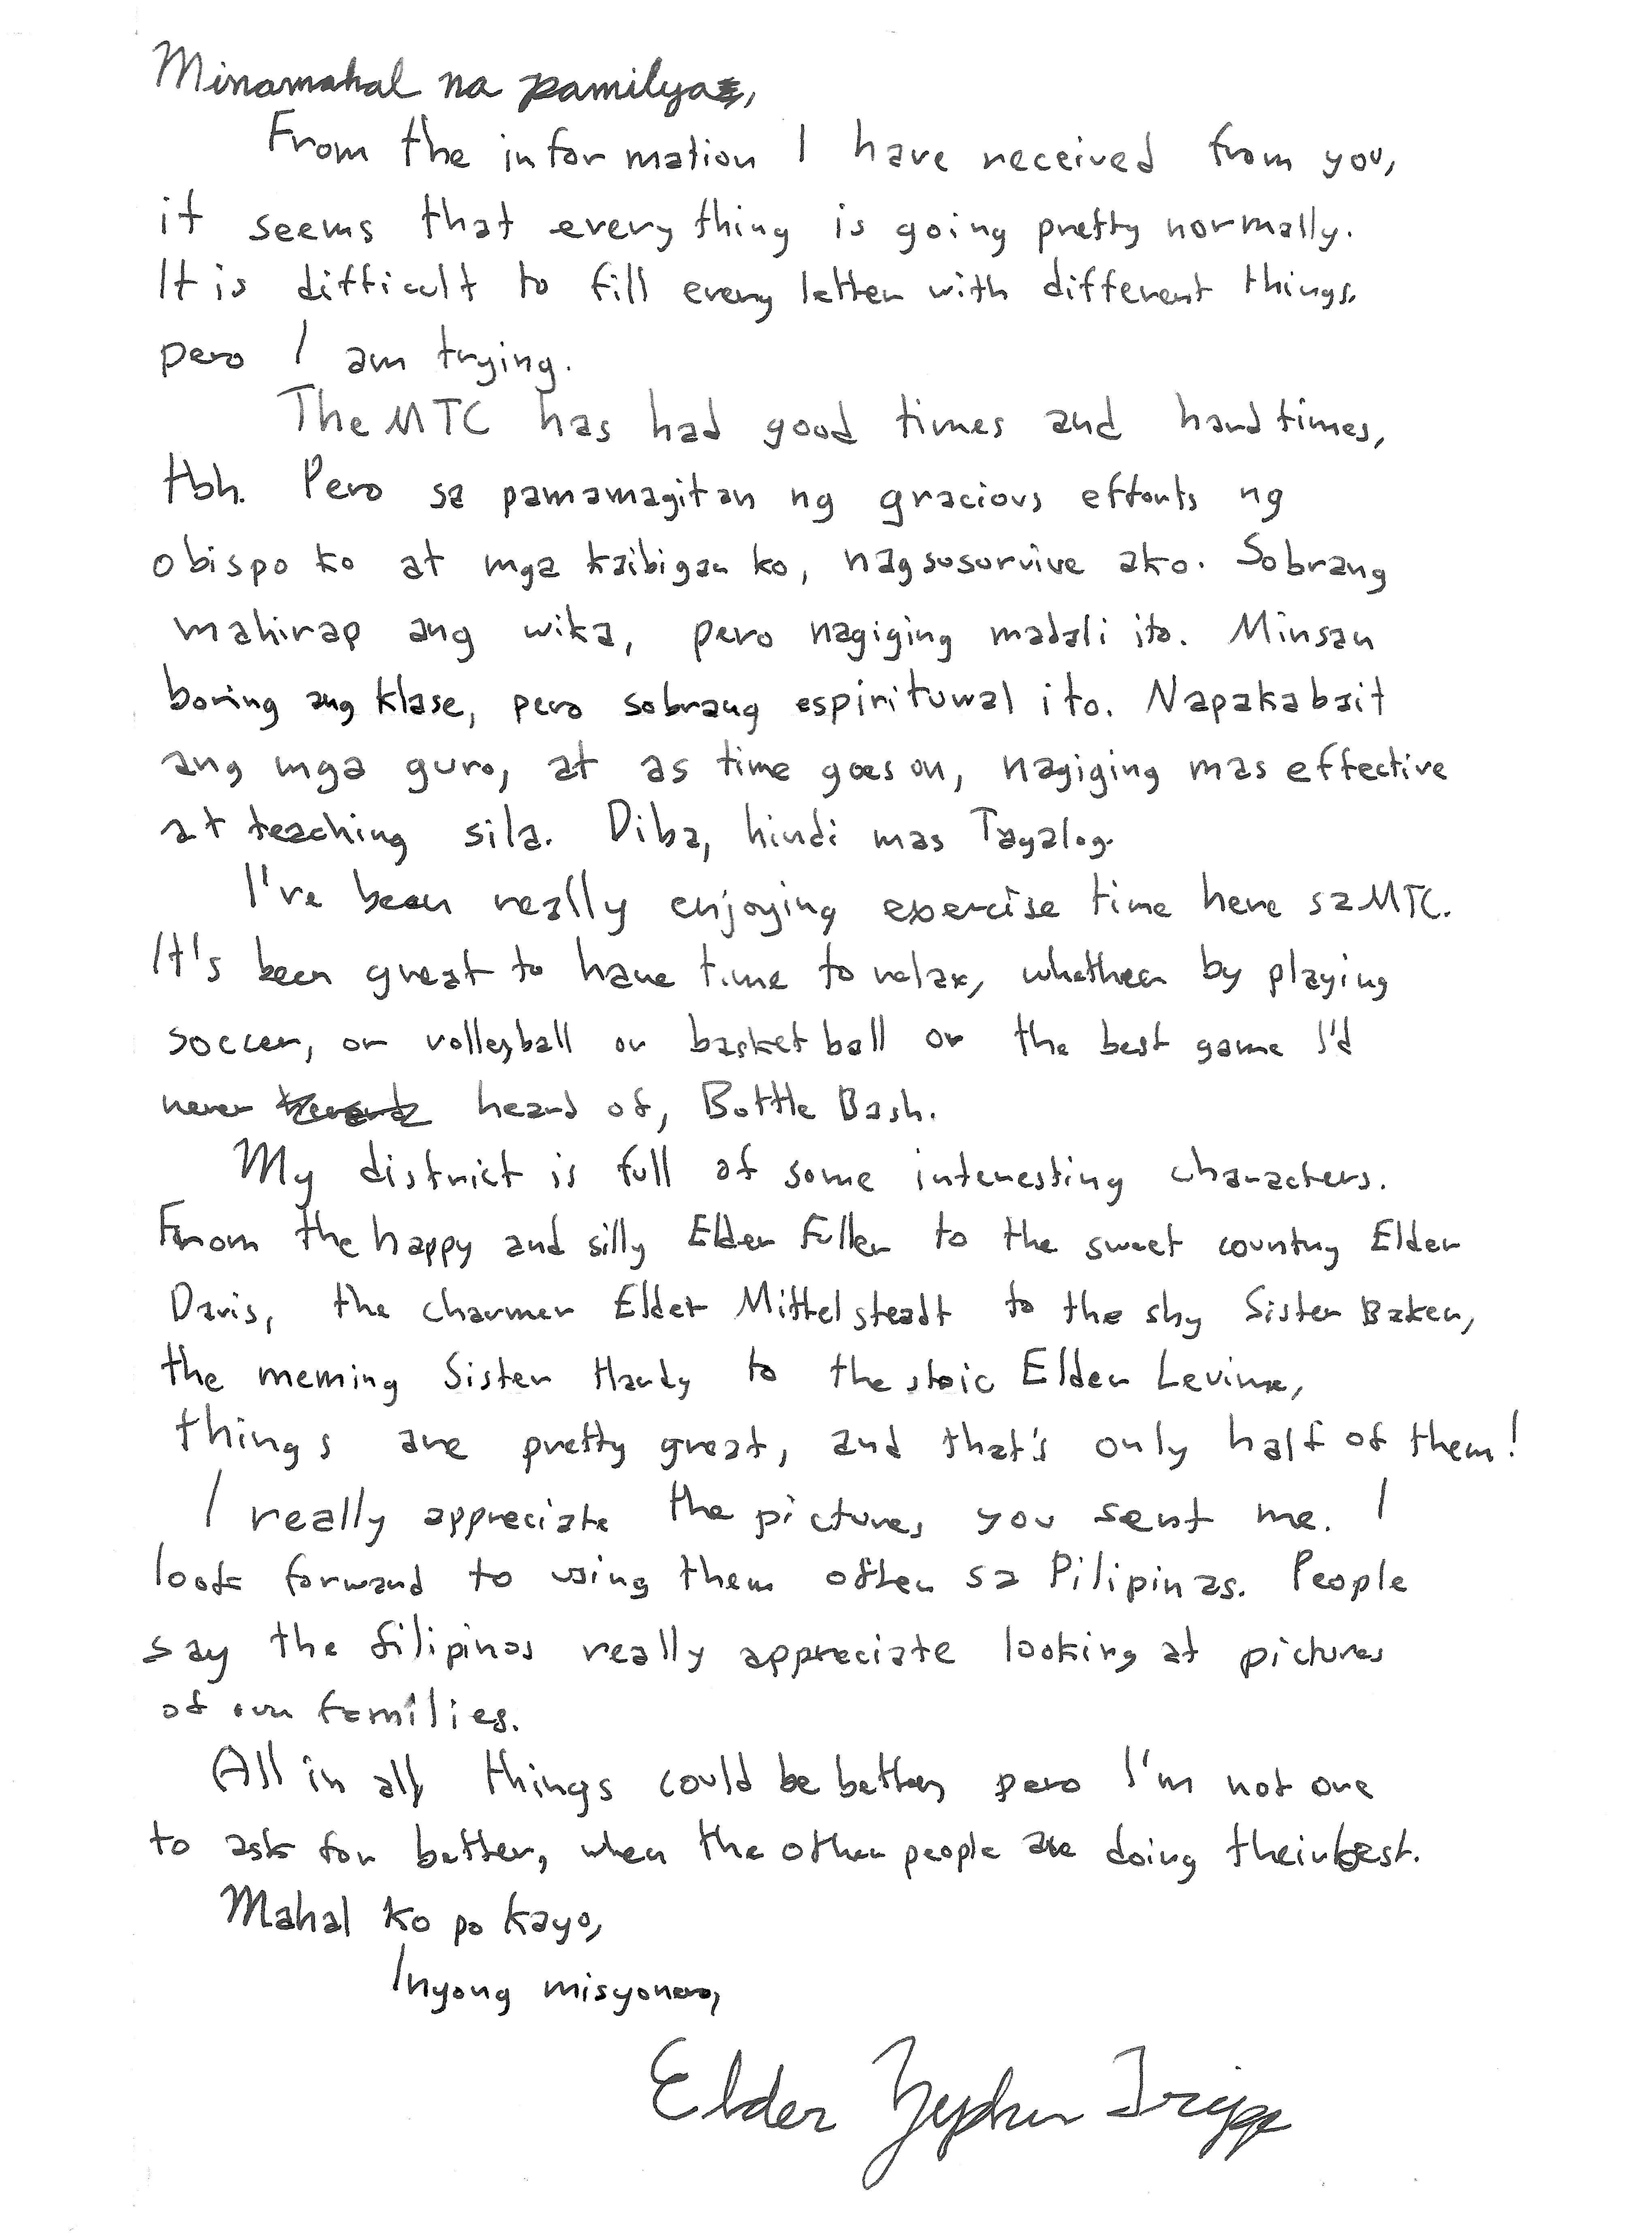 Minamahal na pamilya,
From the information I have received from you,
it seems that everything is going pretty normally.
It is difficult to fill every letter with different things,
pero I am trying.
The MTC has had good times and hard times,
tbh. Pero sa pamamagitan ng gracious efforts ng
obispo ko at mga kaibigan ko, nagsusurvive ako. Sobrang
mahirap ang wika, pero nagiging madali ito. Minsan
boring ang klase, pero sobrang espirituwal ito. Napakabait
ang mga guro, at as time goes on, nagiging mas effective
at teaching sila. Diba, hindi mas Tagalog.
I've been really enjoying exercise time here sa MTC.
It's been great to have time to relax, whether by playing
soccer, or volleyball or basketball or the best game I'd
never heard of, Bottle Bash.
My district is full of some interesting characters.
From the happy and silly Elder Fuller to the sweet country Elder
Davis, the charmer Elder Mittelsteadt to the shy Sister Baker,
the meming Sister Hardy to the stoic Elder Levine,
things are pretty great, and that's only half of them!
I really appreciate the pictures you sent me. I
look forward to using them often sa Pilipinas. People
say the filipinos really appreciate looking at pictures
of our families.
All in all, things could be better, pero I'm not one
to ask for better, when the other people are doing their best.
Mahal ko po kayo,
Inyong misyonero,
Elder Zephyr Tripp